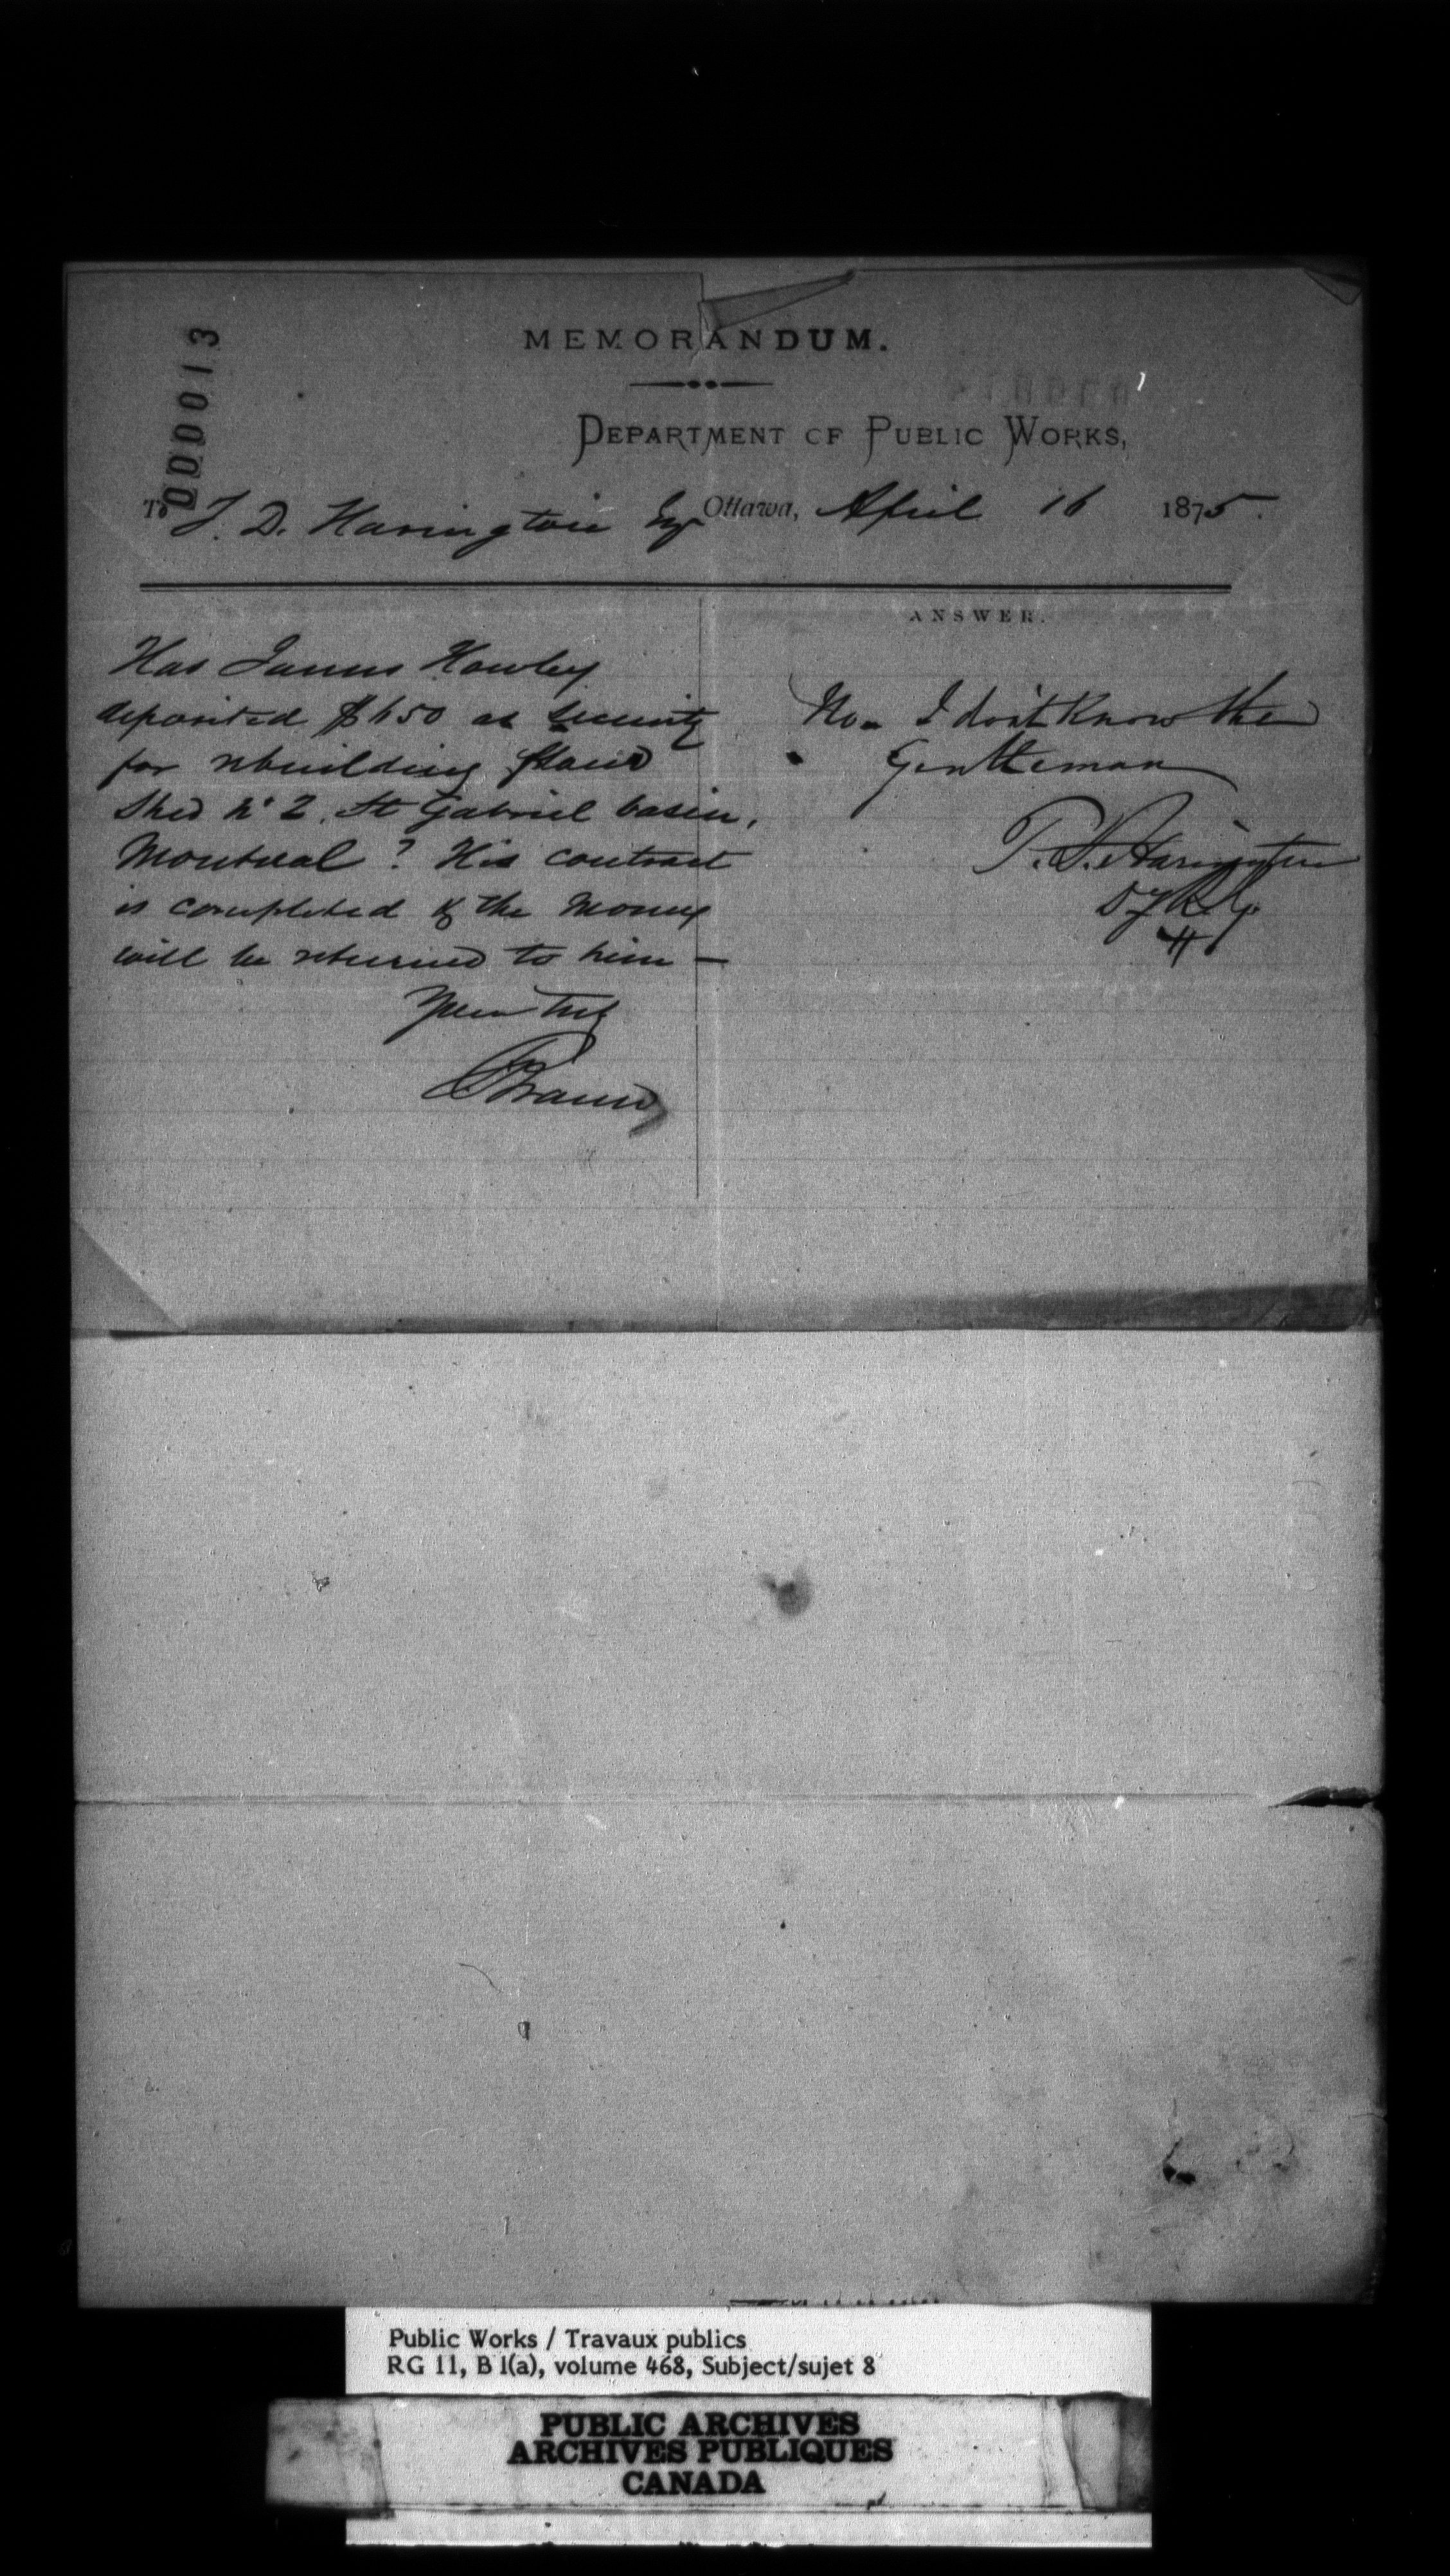 000013
MEMORANDUM.
DEPARTMENT OF PUBLIC WORKS,
To T. D. Harington Esqr Ottawa, April 16 1875.
ANSWER.
Has James Howley
deposited $650 as security
for rebuilding flour
Shed No 2, St Gabriel basin,
Montreal? His contract
is completed & the money
will be returned to him —
Yours truly
FBraun
No. I don't Know the
Gentleman
T. D. Harington
Public Works / Travaux publics
RG 11, B 1(a), volume 468, Subject/sujet 8
PUBLIC ARCHIVES
ARCHIVES PUBLIQUES
CANADA